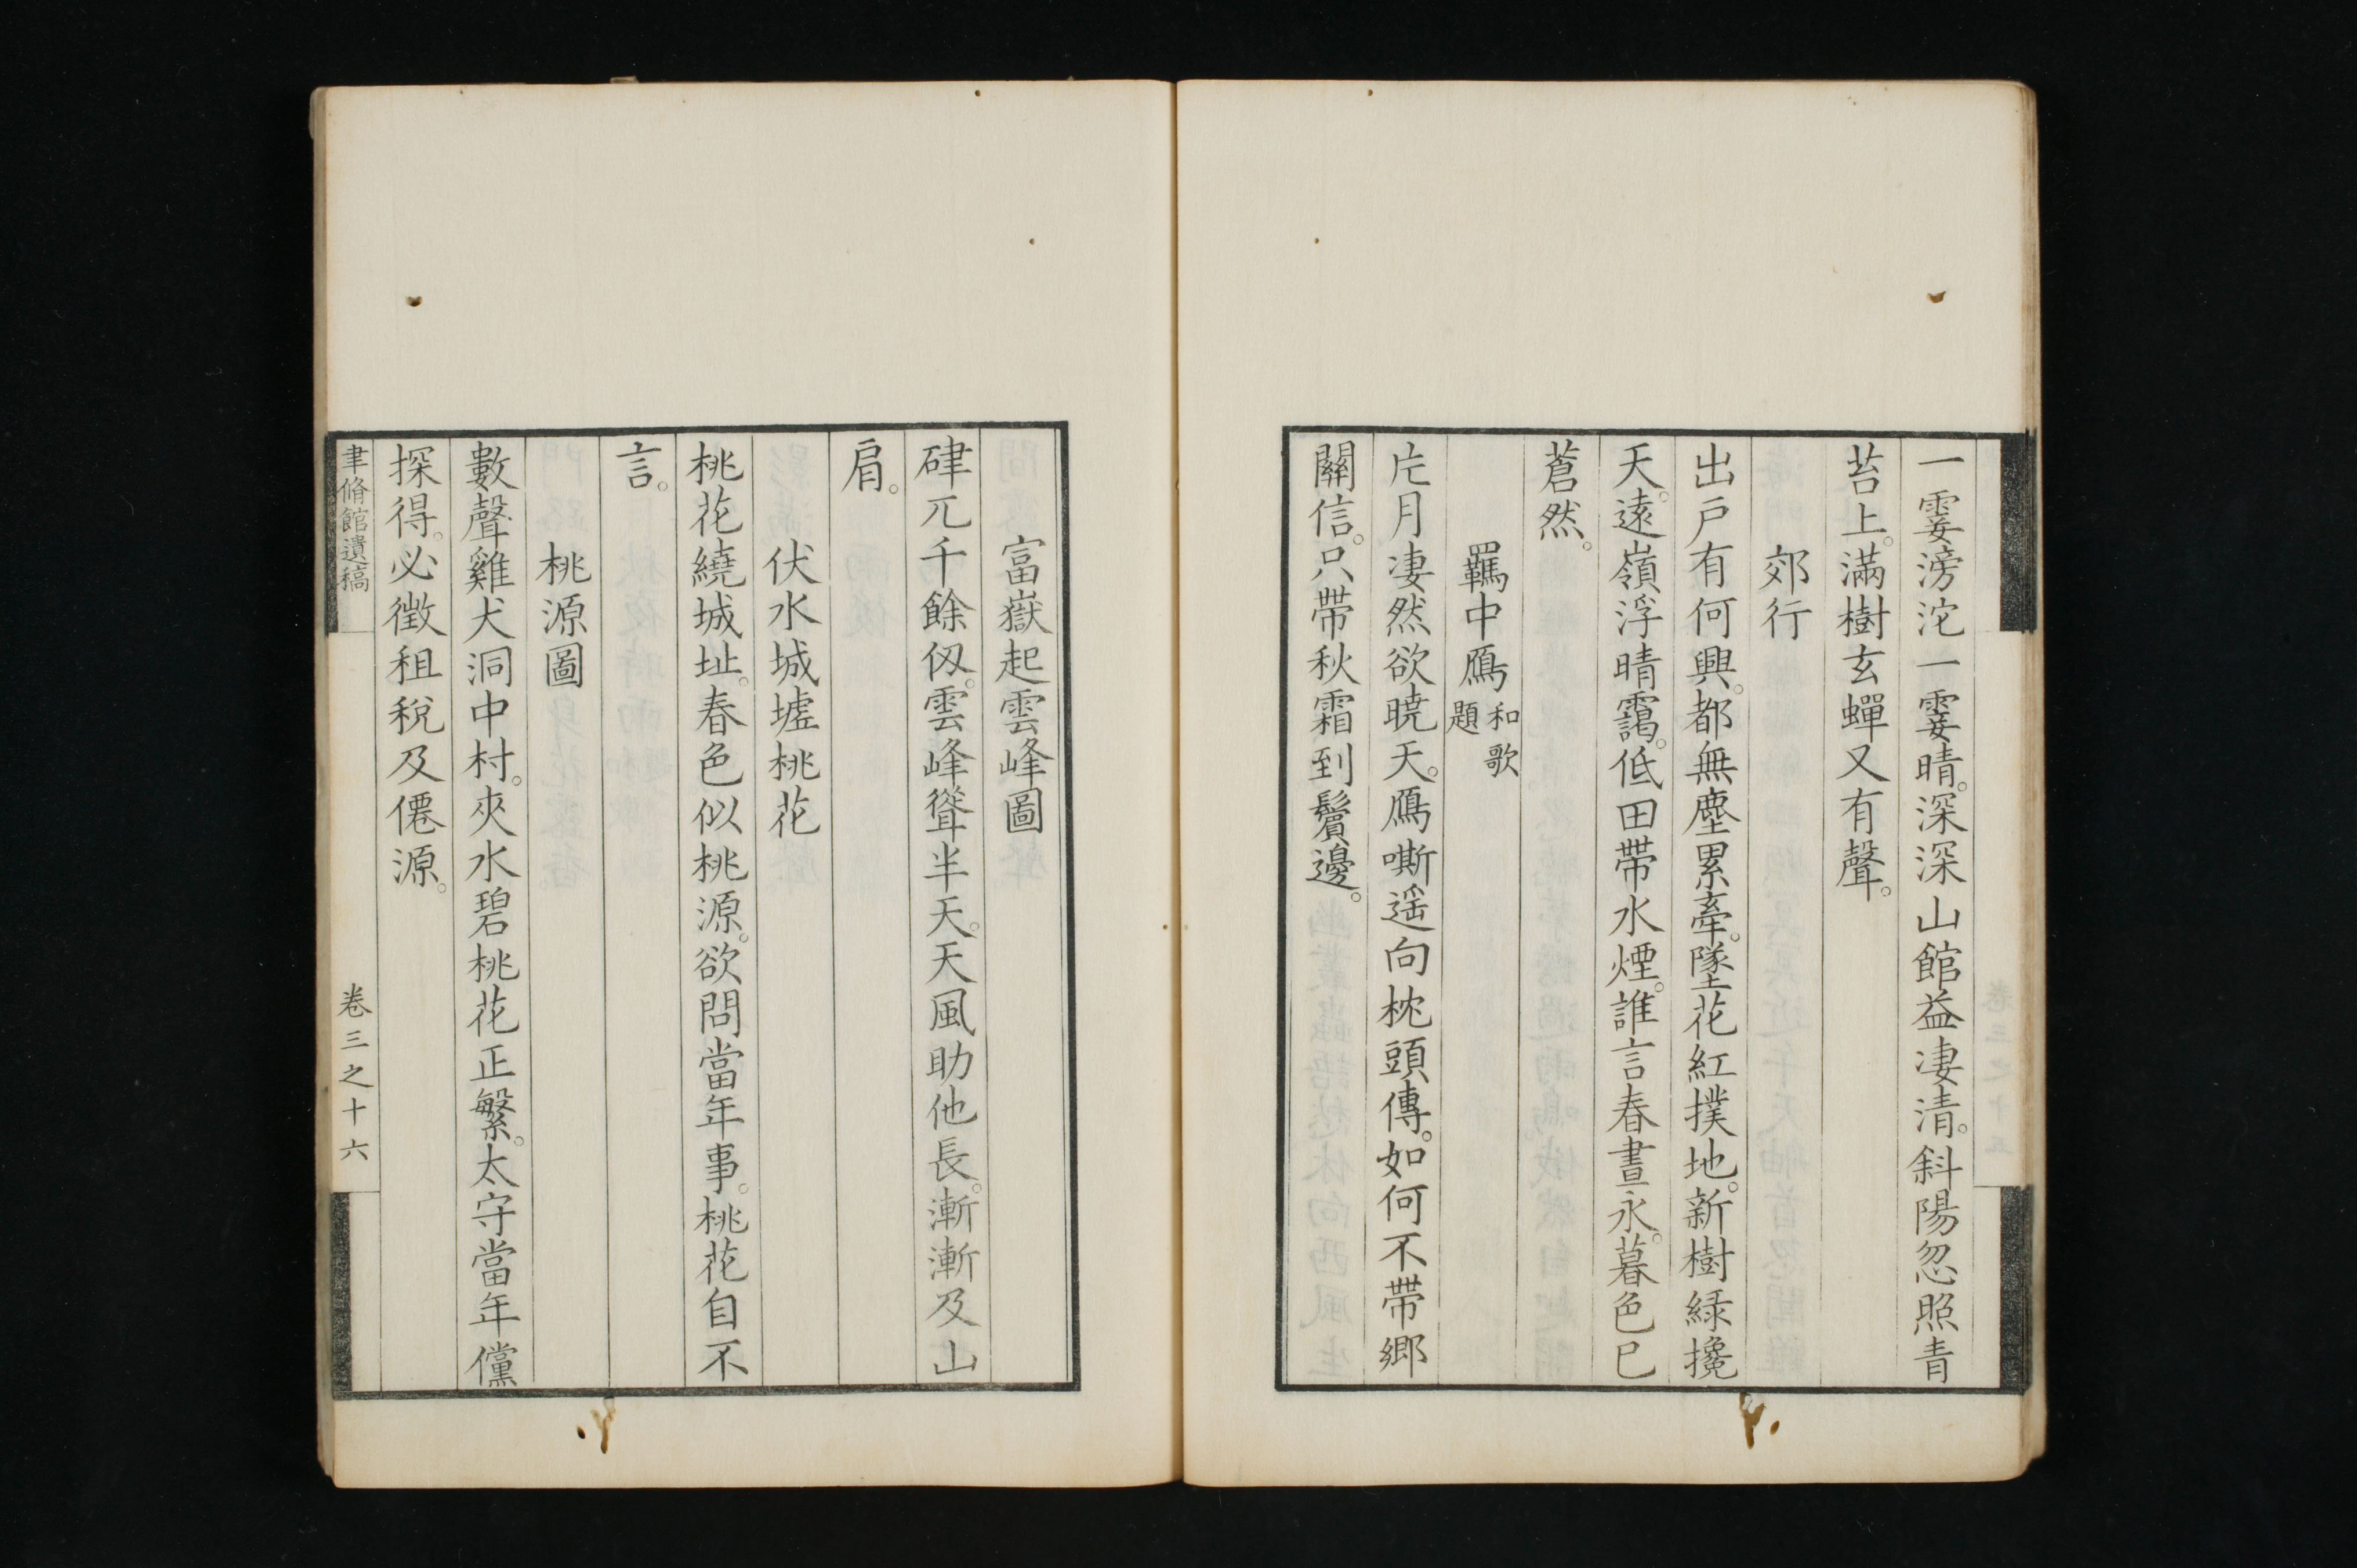 一霎滂沱一霎晴。深深山館益凄清。斜陽忽照青
苔上。滿樹玄蟬又有聲。
郊行
出戸有何興。都無塵累牽。墜花紅撲地。新樹緑攙
天。遠嶺浮晴靄。低田帶水煙。誰言春晝永。暮色已
蒼然。
羈中鴈 和歌題
片月凄然欲曉天。鴈嘶遥向枕頭傳。如何不帶郷
關信。只帶秋霜到鬢邊。
富嶽起雲峰圖
硉兀千餘仭。雲峰聳半天。天風助他長。漸漸及山
肩。
伏水城墟桃花
桃花繞城址。春色似桃源。欲問當年事。桃花自不
言。
桃源圖
數聲雞犬洞中村。夾水碧桃花正繁。太守當年儻
探得。必徵租税及僊源。
聿脩館遺稿
卷三之十六